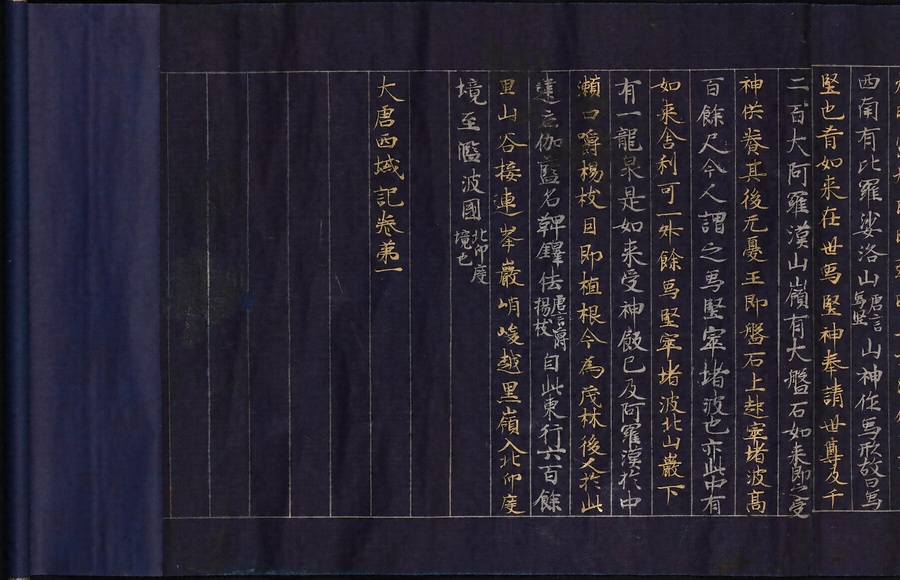 西南有比羅娑洛山唐言馬堅山神作馬形故曰馬
堅也昔如來在世馬堅神奉請世尊及千
二百大阿羅漢山嶺有大盤石如來即之受
神供養其後无憂王即盤石上起窣堵波高
百餘尺今人謂之馬堅窣堵波也亦云此中有
如來舍利可一升餘馬堅窣堵波北山巖下
有一龍泉是如來受神飯已及阿羅漢於中
漱口嚼楊枝因即植根今為茂林後人於此
建立伽藍名鞞鐸佉唐言嚼楊枝自此東行六百餘
里山谷接連峯巖峭峻越黑嶺入北印度
境至濫波國北印度境也
大唐西域記卷第一